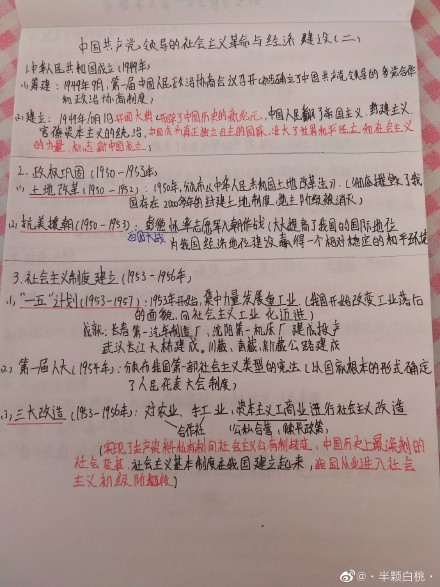 中国共产党领导的社会主义革命与经济建设(二)
1.中华人民共和国成立(1949年)
(1)筹建:1949年9月,第一届中国人民政治协商会议召开(初步确立了中国共产党领导的多党合作
和政治协商制度)
(2)建立:1949年10月1日开国大典(开辟了中国历史的新纪元,中国人民翻了帝国主义、封建主义、
官僚资本主义的统治,中国成为真正独立自主的国家,壮大了世界和平民主和社会主义
的力量 标志新中国成立)
2.政权巩固(1950-1953年)
(1)土地改革(1950-1952):1950年,颁布《中华人民共和国土地改革法》,(彻底摧毁了我
国存在2000多年的封建土地制度,地主阶级被消灭)
(2)抗美援朝(1950-1953):彭德怀率志愿军入朝作战(大大提高了我国的国际地位
为我国经济建设赢得一个相对稳定的和平环境
3.社会主义制度建立(1953-1956年)
(1)"一五"计划(1953-1957):1953年开始,集中力量发展重工业(我国开始改变工业落后
的面貌,向社会主义工业化迈进)
成就:长春第一汽车制造厂,沈阳第一机床厂建成投产
武汉长江大桥建成。川藏、青藏、新藏公路建成
(2)第一届人大(1954年):颁布我国第一部社会主义类型的宪法(以国家根本的形式确定
了人民代表大会制度)
(3)三大改造(1953-1956年):对农业、手工业、资本主义工商业进行社会主义改造
合作社 公私合营,赎买政策,
(实现了生产资料私有制向社会主义公有制转变,中国历史上最深刻的
社会变革,社会主义基本制度在我国建立起来,我国从此进入社会
主义初级阶段)
@·半颗白桃·